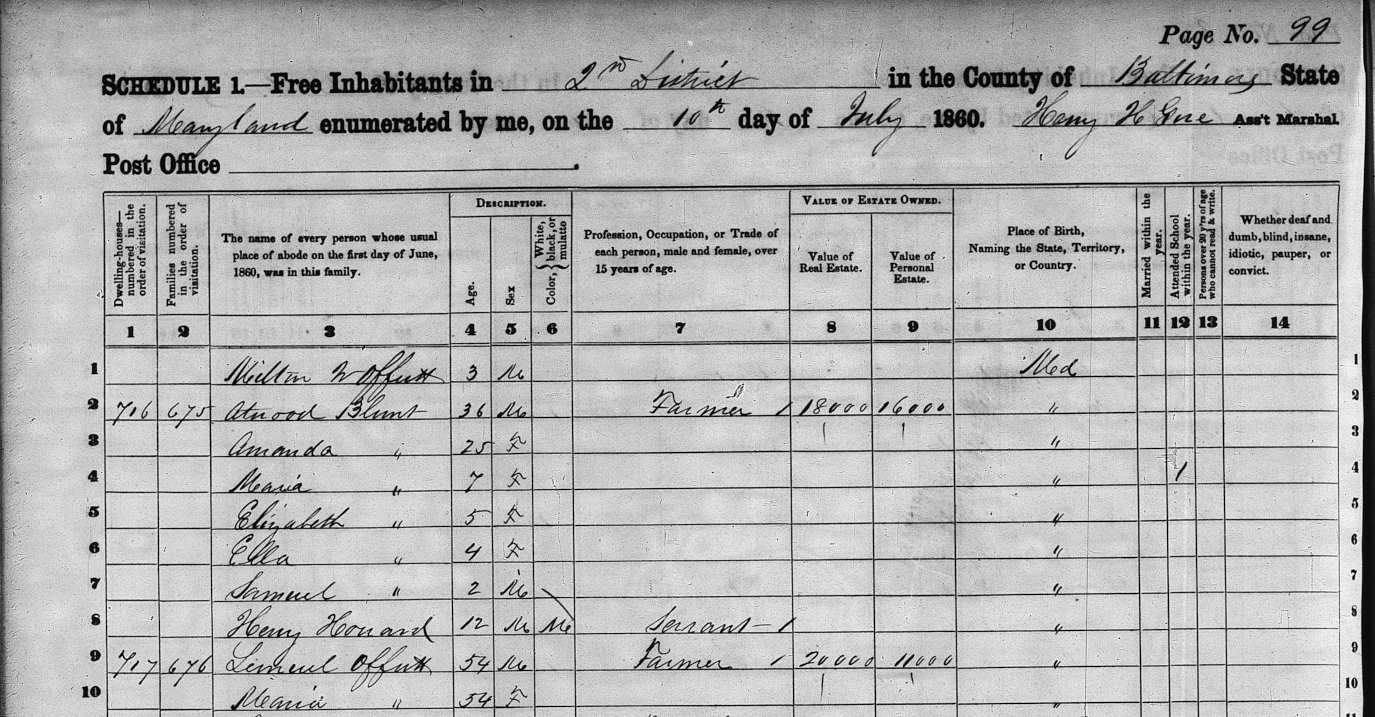 Page No. 99
SCHEDULE 1.—Free Inhabitants in 2nd District in the County of Baltimore State
of Maryland enumerated by me, on the 10th day of July 1860. Henry H Gore Ass't Marshal
Post Office
Dwelling-houses—numbered in the order of visitation.
Families numbered in the order of visitation.
The name of every person whose usual place of abode on the first day of June, 1860, was in this family.
DESCRIPTION.
Age.
Sex
Color, { White, black, or mulatto
Profession, Occupation, or Trade of each person, male and female, over 15 years of age.
VALUE OF ESTATE OWNED.
Value of Real Estate.
Value of Personal Estate.
Place of Birth, Naming the State, Territory, or Country.
Married within the year.
Attended School within the year.
Persons over 20 y'rs of age who cannot read & write.
Whether deaf and dumb, blind, insane, idiotic, pauper, or convict.
1 2 3 4 5 6 7 8 9 10 11 12 13 14
1 Milton W Offutt 3 M Med 1
2 706 675 Atwood Blunt 36 M Farmer 1 18000 16000 " 2
3 Amanda " 25 F " 3
4 Maria " 7 F " 1 4
5 Elizabeth " 5 F " 5
6 Ella " 4 F " 6
7 Samuel " 2 M " 7
8 Henry Howard 12 M M Servant — 1 " 8
9 707 676 Lemuel Offutt 54 M Farmer 1 20000 11000 " 9
10 Maria " 54 F " 10
11